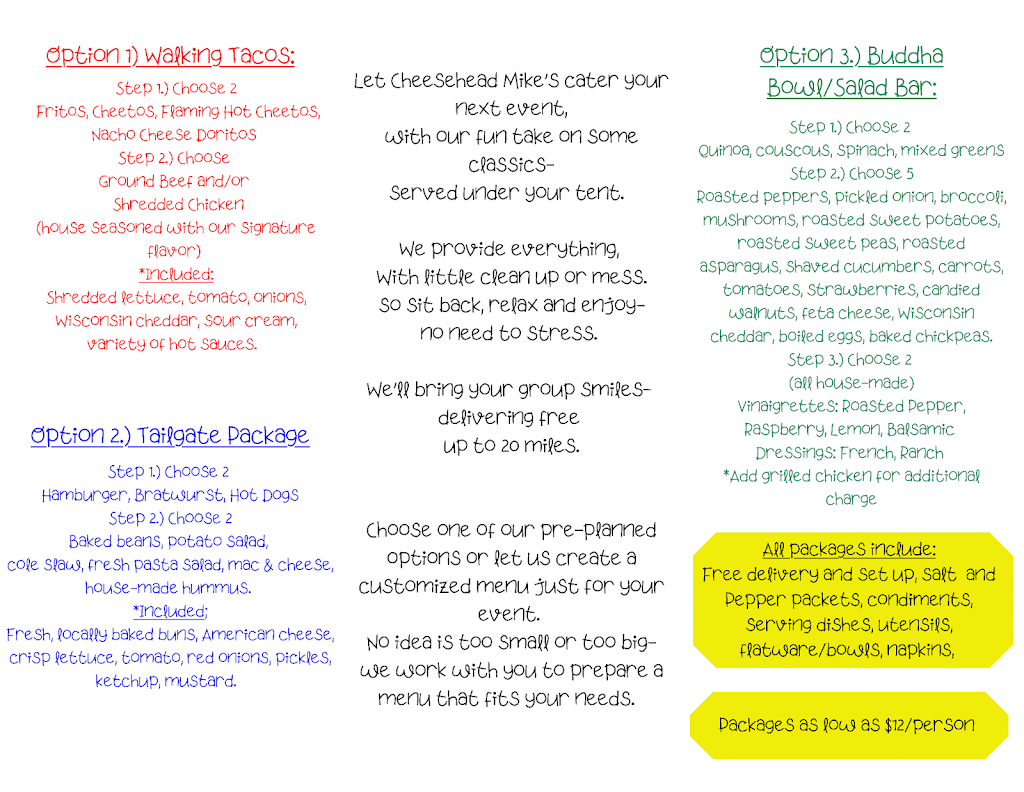 Option 1) Walking Tacos:
Step 1.) Choose 2
Fritos, Cheetos, Flaming Hot Cheetos,
Nacho Cheese Doritos
Step 2.) Choose
Ground Beef and/or
Shredded Chicken
(house seasoned with our signature
flavor)
*Included:
Shredded lettuce, tomato, onions,
Wisconsin cheddar, sour cream,
variety of hot sauces.
Option 2.) Tailgate Package
Step 1.) Choose 2
Hamburger, Bratwurst, Hot Dogs
Step 2.) Choose 2
Baked beans, potato salad,
cole slaw, fresh pasta salad, mac & cheese,
house-made hummus.
*Included;
Fresh, locally baked buns, American cheese,
crisp lettuce, tomato, red onions, pickles,
ketchup, mustard.
Let Cheesehead Mike's cater your
next event,
with our fun take on some
classics-
served under your tent.
We provide everything,
With little clean up or mess.
So sit back, relax and enjoy-
no need to stress.
We'll bring your group smiles-
delivering free
up to 20 miles.
Choose one of our pre-planned
options or let us create a
customized menu just for your
event.
No idea is too small or too big-
we work with you to prepare a
menu that fits your needs.
Option 3.) Buddha
Bowl/Salad Bar:
Step 1.) Choose 2
Quinoa, couscous, spinach, mixed greens
Step 2.) Choose 5
Roasted peppers, pickled onion, broccoli,
mushrooms, roasted sweet potatoes,
roasted sweet peas, roasted
asparagus, shaved cucumbers, carrots,
tomatoes, strawberries, candied
walnuts, feta cheese, Wisconsin
cheddar, boiled eggs, baked chickpeas.
Step 3.) Choose 2
(all house-made)
Vinaigrettes: Roasted Pepper,
Raspberry, Lemon, Balsamic
Dressings: French, Ranch
*Add grilled chicken for additional
charge
All packages include:
Free delivery and set up, salt and
Pepper packets, condiments,
serving dishes, utensils,
flatware/bowls, napkins,
Packages as low as $12/person